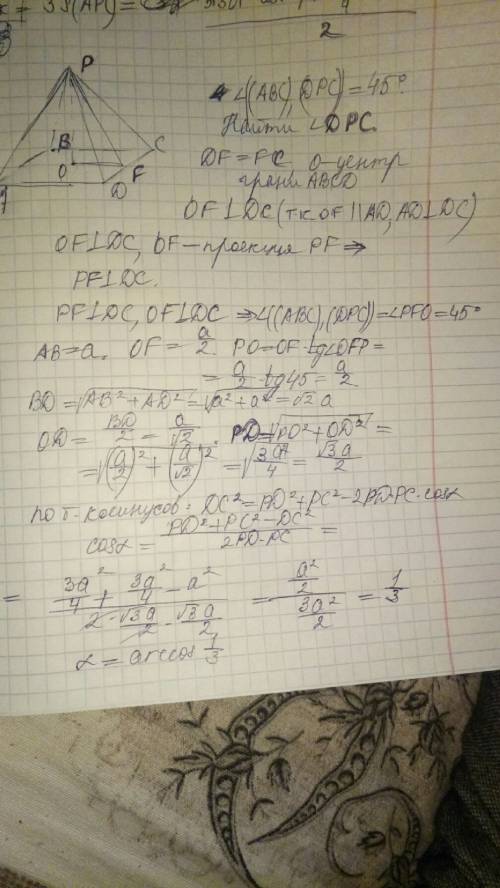 2
P
B
C
O
F
D
∠((ABC), (DPC)) = 45°
Найти ∠DPC.
DF = FC O-центр
грани ABCD
OF⊥DC (т.к OF || AD, AD⊥DC)
OF⊥DC, OF - проекция PF ⇒
PF⊥DC.
PF⊥DC, OF⊥DC ⇒ ∠((ABC), (DPC)) = ∠PFO = 45°
AB = a. OF = a/2. PO = OF · tg∠OFP =
= a/2 · tg45 = a/2.
BD = √(AB² + AD²) = √(a² + a²) = √2 a
OD = BD/2 = a/√2. PD = √(PO² + OD²) =
= √((a/2)² + (a/√2)²) = √(3a²/4) = √3a/2
по т. косинусов: DC² = PD² + PC² - 2PD·PC·cosα
cosα = (PD² + PC² - DC²)/(2PD·PC) =
= (3a²/4 + 3a²/4 - a²)/(2 · √3a/2 · √3a/2) = (a²/2)/(3a²/2) = 1/3
α = arccos 1/3